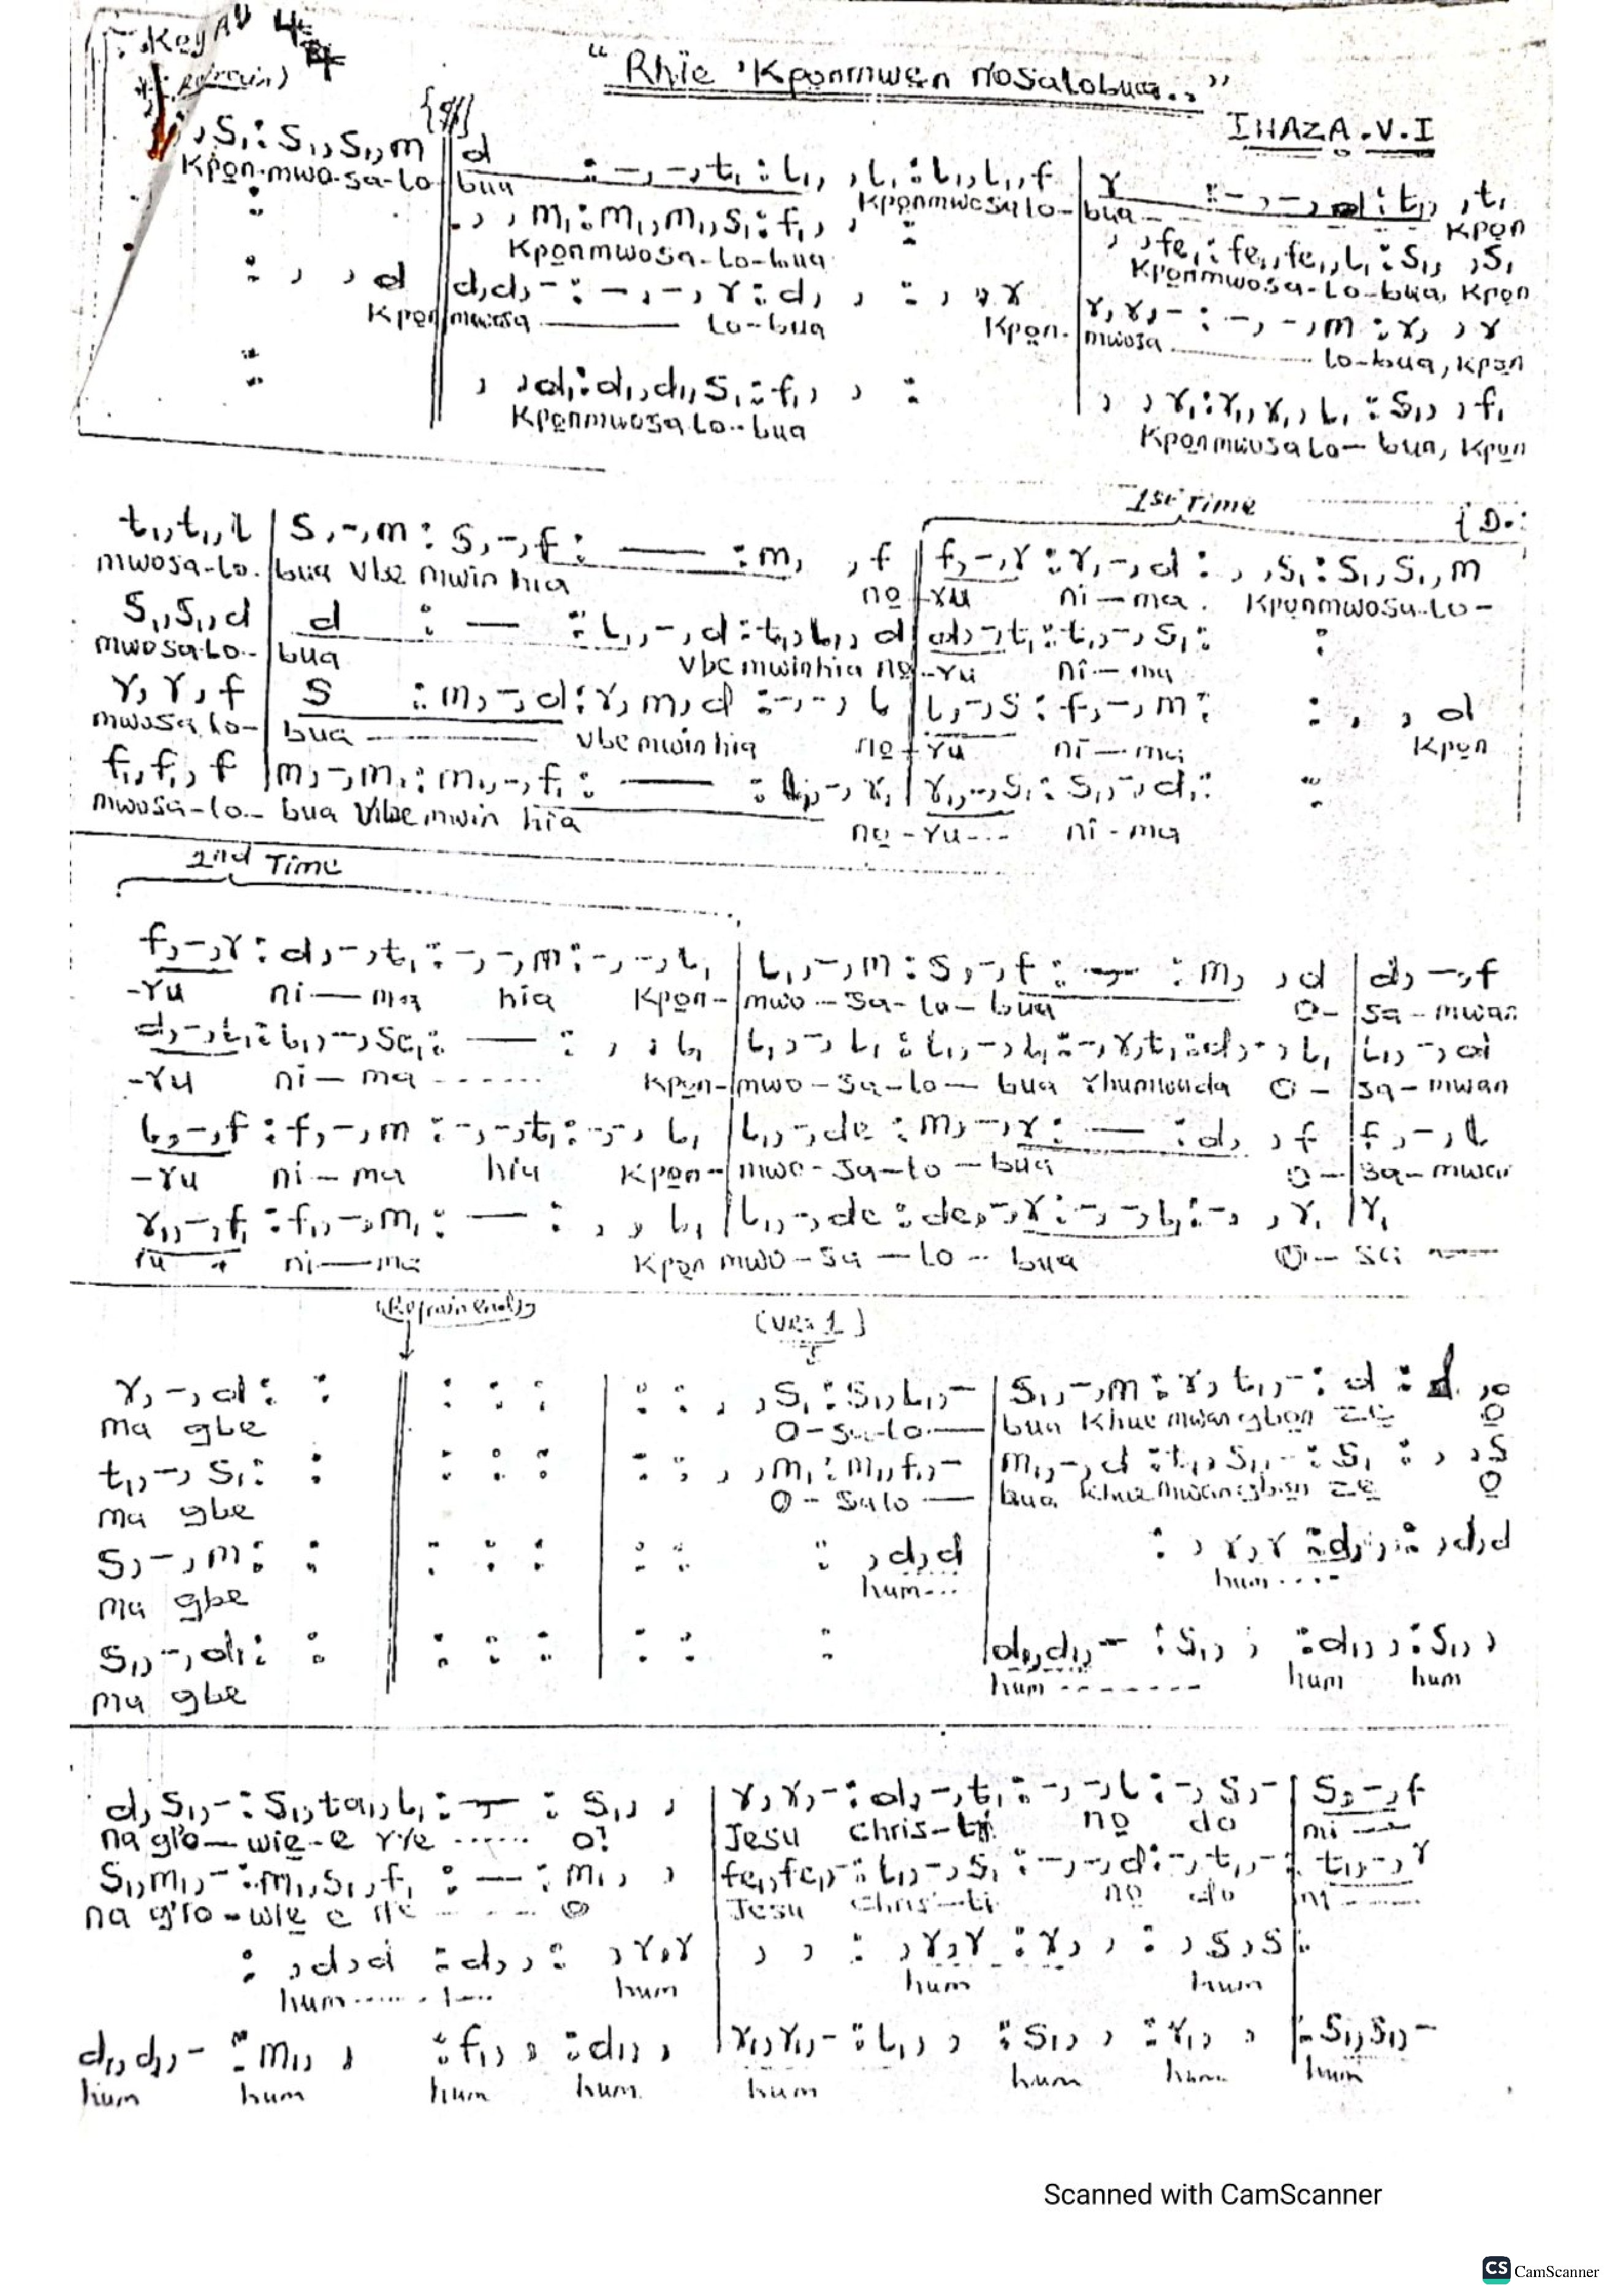 Key A♭ 4/4
Refrain)
"Rhie 'Kponmwen nosalobua.."
IHAZA.V.I
{𝄋}
,s₁:s₁,s₁,m | d :-,-,t₁:l₁, ,l₁:l₁,l₁,f | r :-,-,d:t₁, ,t₁
Kpọn-mwo-sa-lo bua Kpọnmwosalo-bua Kpọn
, ,m₁:m₁,m₁,s₁:f₁, , : , ,fe₁:fe₁,fe₁,l₁:s₁, ,s₁
Kpọnmwosa-lo-bua Kpọnmwosa-lo-bua, Kpọn
: , ,d | d,d,-:-,-,r:d, , : , ,r | r,r,-:-,-,m:r, ,r
Kpọn mwosa lo-bua Kpọn. mwosa lo-bua, Kpọn
: , ,d₁:d₁,d₁,s₁:f₁, , : , ,r₁:r₁,r₁,l₁:s₁, ,f₁
Kpọnmwosalo-bua Kpọnmwosalo-bua, Kpọn
1st Time {D.:
t₁,t₁,l | s,-,m:s,-,f:— :m, ,f | f,-,r:r,-,d: , ,s₁:s₁,s₁,m
mwosa-lo. bua vbe mwin hia nọ-ru ni-ma. Kpọnmwosa-lo-
s₁,s₁,d | d :— :l₁,-,d:t₁,l₁,d | d,-,t₁:t₁,-,s₁: :
mwosa-lo- bua vbe mwin hia nọ-ru ni-ma
r,r,f | s :m,-,d:r,m,d:-,-,l | l,-,s:f,-,m: : , ,d
mwosa lo- bua vbe mwin hia nọ-ru ni-ma Kpọn
f₁,f₁,f | m,-,m₁:m₁,-,f₁:— :l₁,-,r₁ | r₁,-,s₁:s₁,-,d₁: :
mwosa-lo- bua vbe mwin hia nọ-ru... ni-ma
2nd Time
f,-,r:d,-,t₁:-,-,m:-,-,l₁ | l₁,-,m:s,-,f:— :m, ,d | d,-,f
-ru ni-ma hia Kpọn-mwo-sa-lo-bua O-sa-mwan
d,-,t₁:l₁,-,se₁:— : , ,l₁ | l₁,-,l₁:l₁,-,l₁:-,r,t₁:d,-,l₁ | l₁,-,d
-ru ni-ma ...... Kpọn-mwo-sa-lo-bua rhunmuda O-sa-mwan
l,-,f:f,-,m:-,-,t₁:-,-,l₁ | l₁,-,de:m,-,r:— :d, ,f | f,-,l
-ru ni-ma hia Kpọn-mwo-sa-lo-bua O-sa-mwan
r₁,-,f₁:f₁,-,m₁:— : , ,l₁ | l₁,-,de:de,-,r:-,-,l₁:-, ,r₁ | r₁
ru ni-ma Kpọn mwo-sa-lo-bua O-sa
(Refrain end) (ver 1)
r,-,d: : || : : : | : : , ,s₁:s₁,l₁,- | s₁,-,m:r,t₁,-:d :d ,
ma gbe O-sa-lo- bua Khue mwan gbon ze O
t₁,-,s₁: : : : : : : , ,m₁:m₁,f₁,- | m₁,-,d:t₁,s₁,-:s₁: , ,s
ma gbe O-salo- bua Khue mwan gbon ze O
s,-,m: : : : : : : : ,d,d | : ,r,r:d, , : ,d,d
ma gbe hum... hum....
s₁,-,d₁: : : : : : : : | d₁,d₁,-:s₁, , :d₁, , :s₁, ,
ma gbe hum ........ hum hum
d,s₁,-:s₁,ta₁,l₁:— :s₁, , | r,r,-:d,-,t₁:-,-,l:-,s,- | s,-,f
na gb'o-wie-e r're ...... o! Jesu Chris-ti nọ do mi
s₁,m₁,-:m₁,s₁,f₁:— :m₁, , | fe₁,fe₁,-:l₁,-,s₁:-,-,d:-,t₁,- | t₁,-,r
na g'io-wie e rre o Jesu Chris-ti nọ do
: ,d,d :d, , : ,r,r | , , : ,r,r :r, , : ,s,s
hum...... hum hum hum
d₁,d₁,- :m₁, , :f₁, , :d₁, , | r₁,r₁,- :l₁, , :s₁, , :r₁, , | s₁,s₁,-
hum hum hum hum hum hum hum hum
Scanned with CamScanner
CS CamScanner